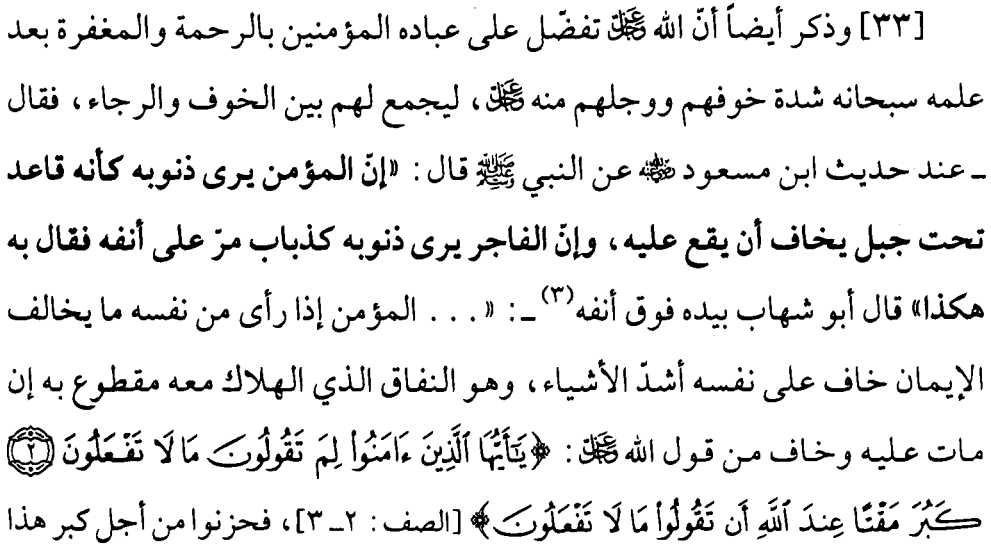 [٣٣] وذكر أيضاً أنّ الله ﷻ تفضّل على عباده المؤمنين بالرحمة والمغفرة بعد
علمه سبحانه شدة خوفهم ووجلهم منه ﷻ، ليجمع لهم بين الخوف والرجاء، فقال
ـ عند حديث ابن مسعود رضي الله عنه عن النبي ﷺ قال: «إنّ المؤمن يرى ذنوبه كأنه قاعد
تحت جبل يخاف أن يقع عليه، وإنّ الفاجر يرى ذنوبه كذباب مرّ على أنفه فقال به
هكذا» قال أبو شهاب بيده فوق أنفه(٣) ـ: «... المؤمن إذا رأى من نفسه ما يخالف
الإيمان خاف على نفسه أشدّ الأشياء، وهو النفاق الذي الهلاك معه مقطوع به إن
مات عليه وخاف من قول الله ﷻ: ﴿يَٰٓأَيُّهَا ٱلَّذِينَ ءَامَنُوا۟ لِمَ تَقُولُونَ مَا لَا تَفْعَلُونَ ۝٢
كَبُرَ مَقْتًا عِندَ ٱللَّهِ أَن تَقُولُوا۟ مَا لَا تَفْعَلُونَ﴾ [الصف: ٢ـ ٣]، فحزنوا من أجل كبر هذا